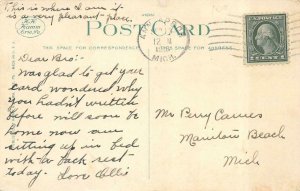 This is where I am it
is a very pleasant place.
POST CARD
THE SPACE FOR CORRESPONDENCE
Dear Bro:-
Was glad to get your
card wondered why
you hadn't written
before will soon be
home now am
sitting up in bed
with a back rest
today.
Love Ollis
12 M
MICH.
Mr Perry Carnes
Manitou Beach
Mich